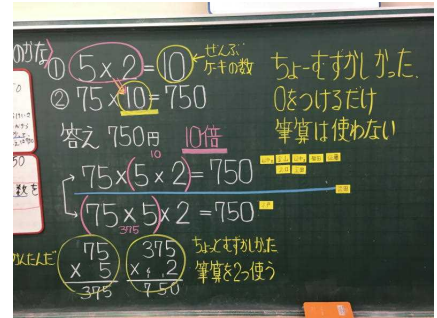 のかな
① 5×2=10
ぜんぶ
ケーキの数
② 75×10=750
答え 750円 10倍
ちょーむずかしかった.
0をつけるだけ
筆算は使わない
10
75×(5×2)=750
(75×5)×2=750
375
75
× 5
375
375
× 2
750
ちょっとむずかしかった
筆算を2つ使う
数を